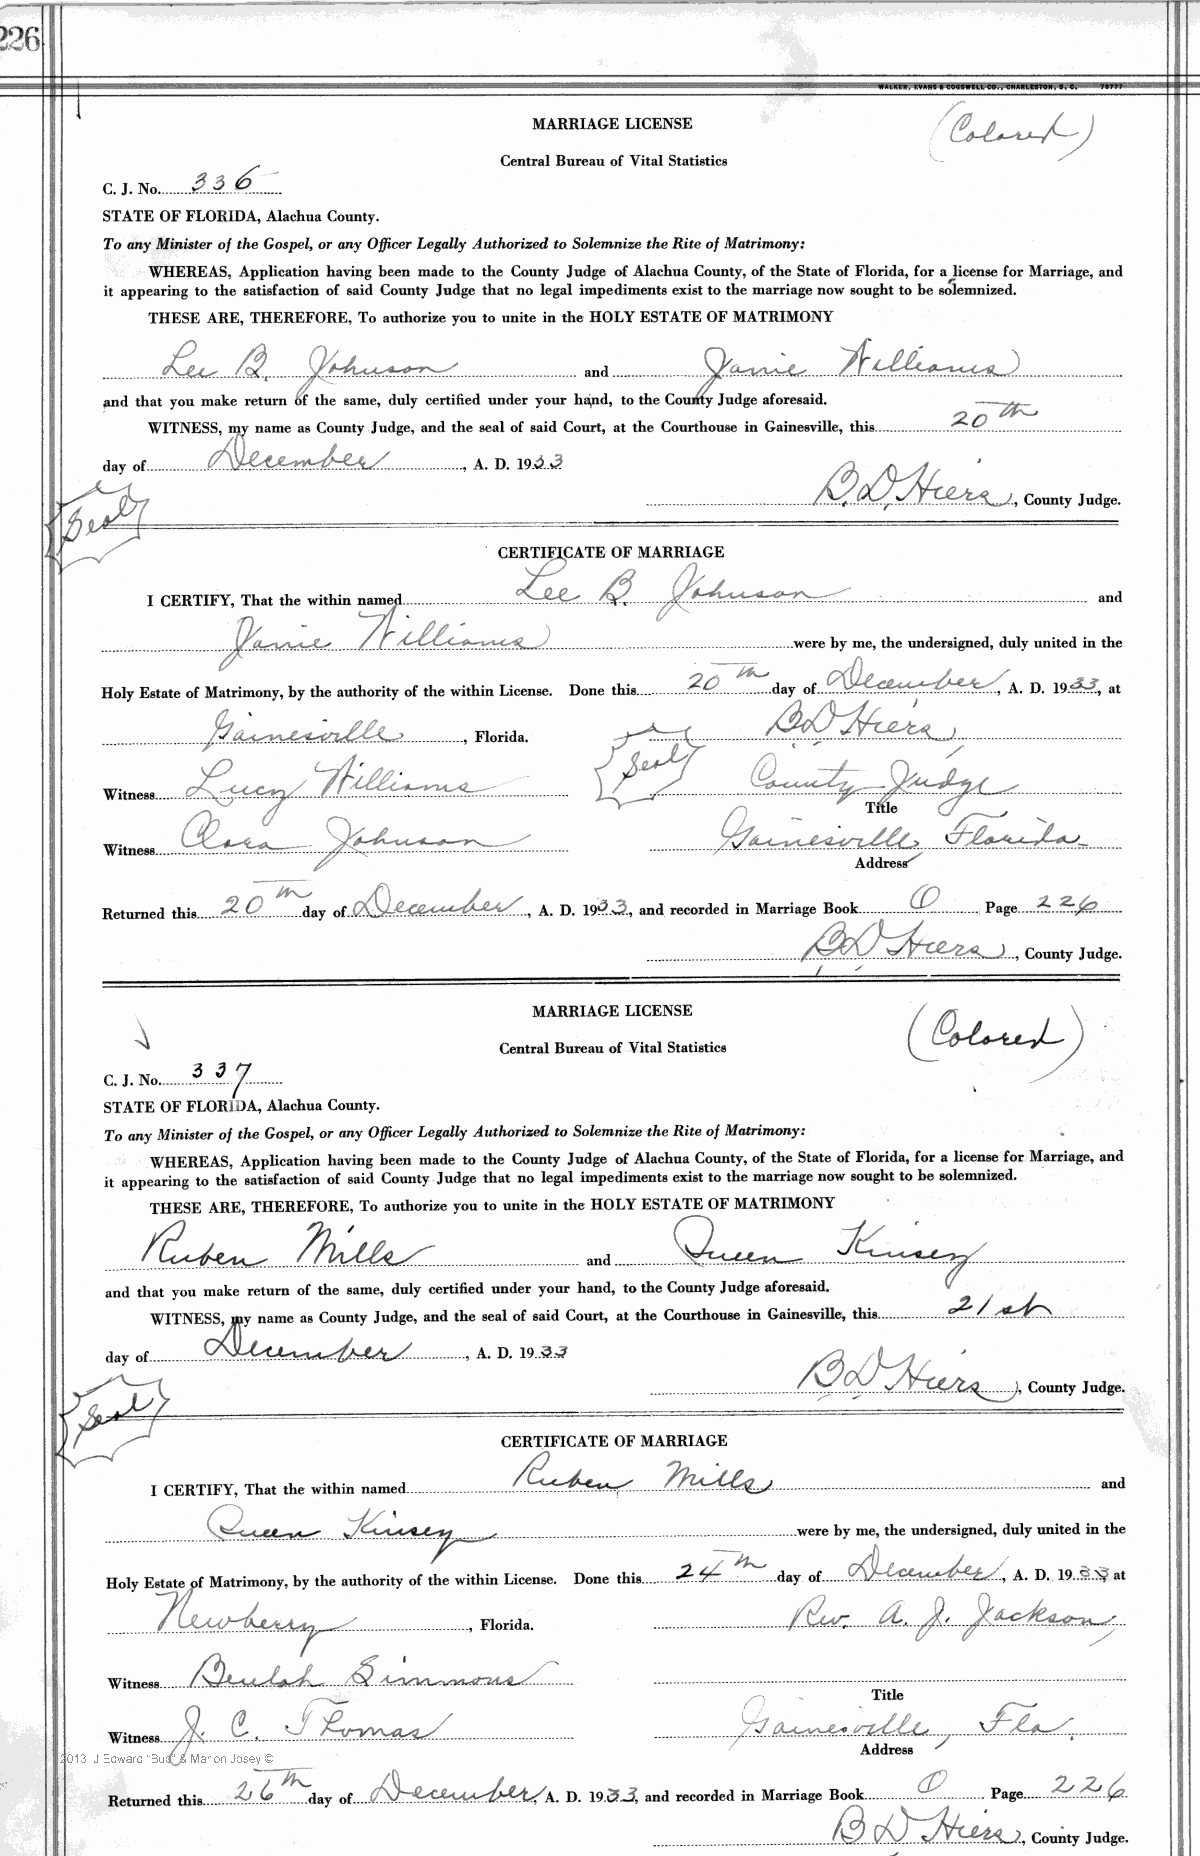 226
WALKER, EVANS & COGSWELL CO., CHARLESTON, S. C. 78777
MARRIAGE LICENSE
(Colored)
Central Bureau of Vital Statistics
C. J. No. 336
STATE OF FLORIDA, Alachua County.
To any Minister of the Gospel, or any Officer Legally Authorized to Solemnize the Rite of Matrimony:
WHEREAS, Application having been made to the County Judge of Alachua County, of the State of Florida, for a license for Marriage, and
it appearing to the satisfaction of said County Judge that no legal impediments exist to the marriage now sought to be solemnized.
THESE ARE, THEREFORE, To authorize you to unite in the HOLY ESTATE OF MATRIMONY
Lee B. Johnson and Janie Williams
and that you make return of the same, duly certified under your hand, to the County Judge aforesaid.
WITNESS, my name as County Judge, and the seal of said Court, at the Courthouse in Gainesville, this 20th
day of December, A. D. 1933
B. D. Hiers, County Judge.
Seal
CERTIFICATE OF MARRIAGE
I CERTIFY, That the within named Lee B. Johnson and
Janie Williams were by me, the undersigned, duly united in the
Holy Estate of Matrimony, by the authority of the within License. Done this 20th day of December, A. D. 1933, at
Gainesville, Florida. B. D. Hiers,
Seal
Witness Lucy Williams County Judge
Title
Witness Clara Johnson Gainesville, Florida
Address
Returned this 20th day of December, A. D. 1933, and recorded in Marriage Book O Page 226
B. D. Hiers, County Judge.
MARRIAGE LICENSE
(Colored)
Central Bureau of Vital Statistics
C. J. No. 337
STATE OF FLORIDA, Alachua County.
To any Minister of the Gospel, or any Officer Legally Authorized to Solemnize the Rite of Matrimony:
WHEREAS, Application having been made to the County Judge of Alachua County, of the State of Florida, for a license for Marriage, and
it appearing to the satisfaction of said County Judge that no legal impediments exist to the marriage now sought to be solemnized.
THESE ARE, THEREFORE, To authorize you to unite in the HOLY ESTATE OF MATRIMONY
Ruben Mills and Queen Kinsey
and that you make return of the same, duly certified under your hand, to the County Judge aforesaid.
WITNESS, my name as County Judge, and the seal of said Court, at the Courthouse in Gainesville, this 21st
day of December, A. D. 1933
B. D. Hiers, County Judge.
Seal
CERTIFICATE OF MARRIAGE
I CERTIFY, That the within named Ruben Mills and
Queen Kinsey were by me, the undersigned, duly united in the
Holy Estate of Matrimony, by the authority of the within License. Done this 24th day of December, A. D. 1933, at
Newberry, Florida. Rev. A. J. Jackson,
Witness Beulah Simmons
Title
Witness J. C. Thomas Gainesville, Fla.
Address
2013 J Edward "Bud" & Marion Josey ©
Returned this 26th day of December, A. D. 1933, and recorded in Marriage Book O Page 226
B D Hiers, County Judge.